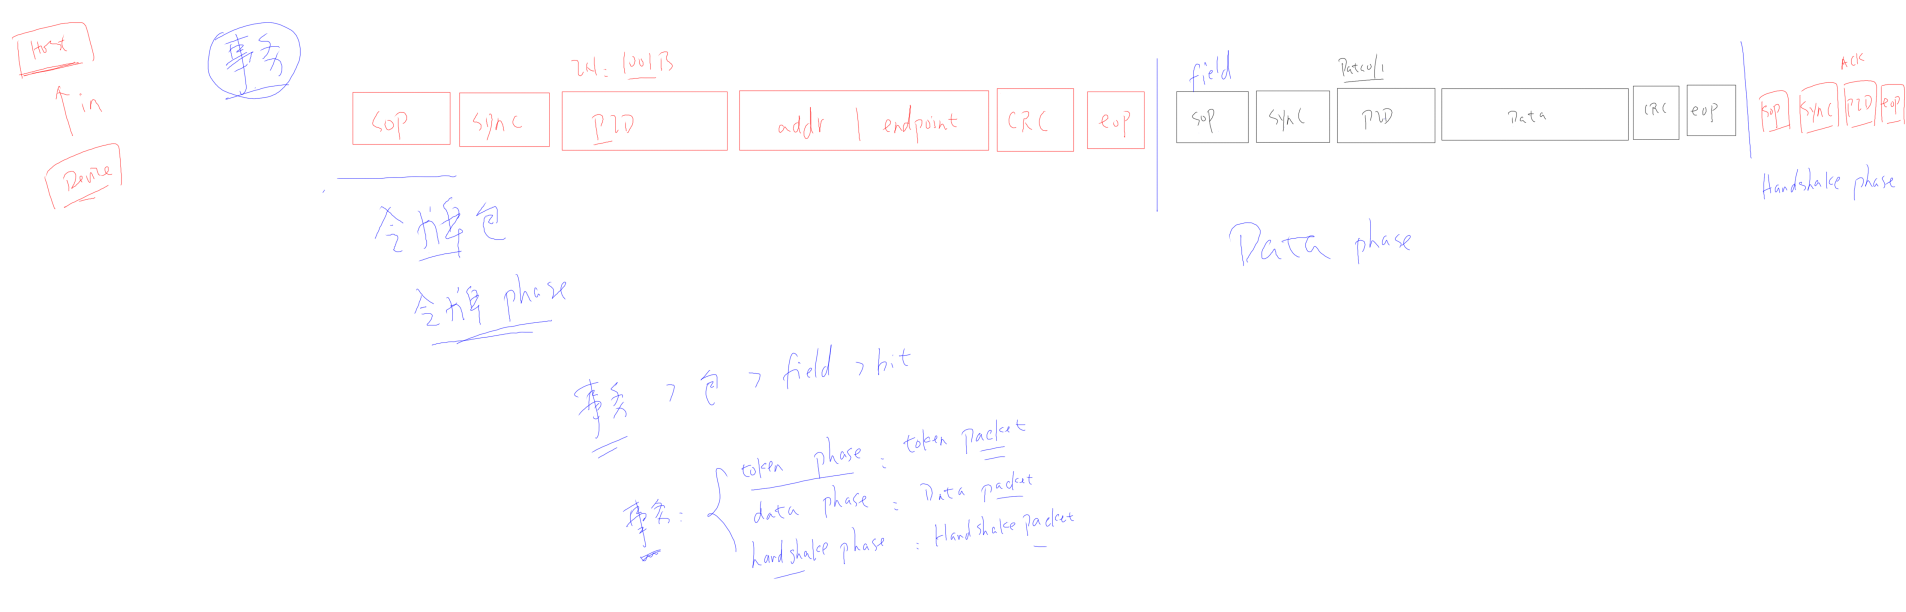 Host
in
Device
事务
IN: 1001B
SOP SYNC PID addr | endpoint CRC eop
field
Data0/1
SOP SYNC PID Data CRC eop
ACK
SOP SYNC PID eop
Handshake phase
令牌包
令牌 phase
Data phase
事务 > 包 > field > bit
事务: { token phase : token packet
data phase : Data packet
handshake phase : Handshake packet